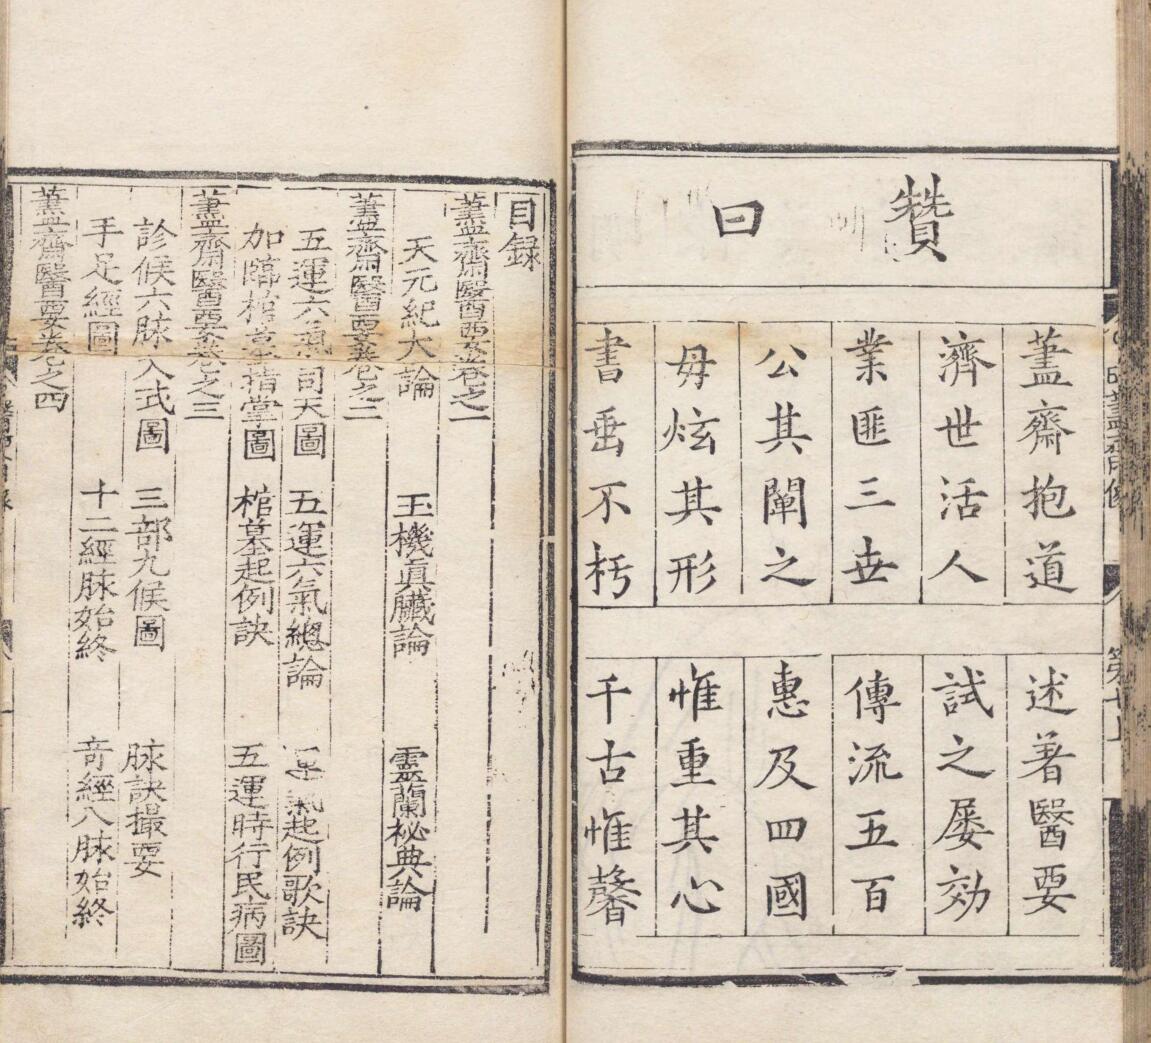 贊曰
藎齋抱道 述著醫要
濟世活人 試之屡効
業匪三世 傳流五百
公其闡之 惠及四國
毋炫其形 惟重其心
書垂不朽 千古惟馨
目録
藎齋醫要卷之一
天元紀大論 玉機眞臟論 靈蘭秘典論
藎齋醫要卷之二
五運六氣司天圖 五運六氣總論 運氣起例歌訣
加臨棺墓指掌圖 棺墓起例訣 五運時行民病圖
藎齋醫要卷之三
診候六脉入式圖 三部九候圖 脉訣撮要
手足經圖 十二經脉始終 奇經八脉始終
藎齋醫要卷之四